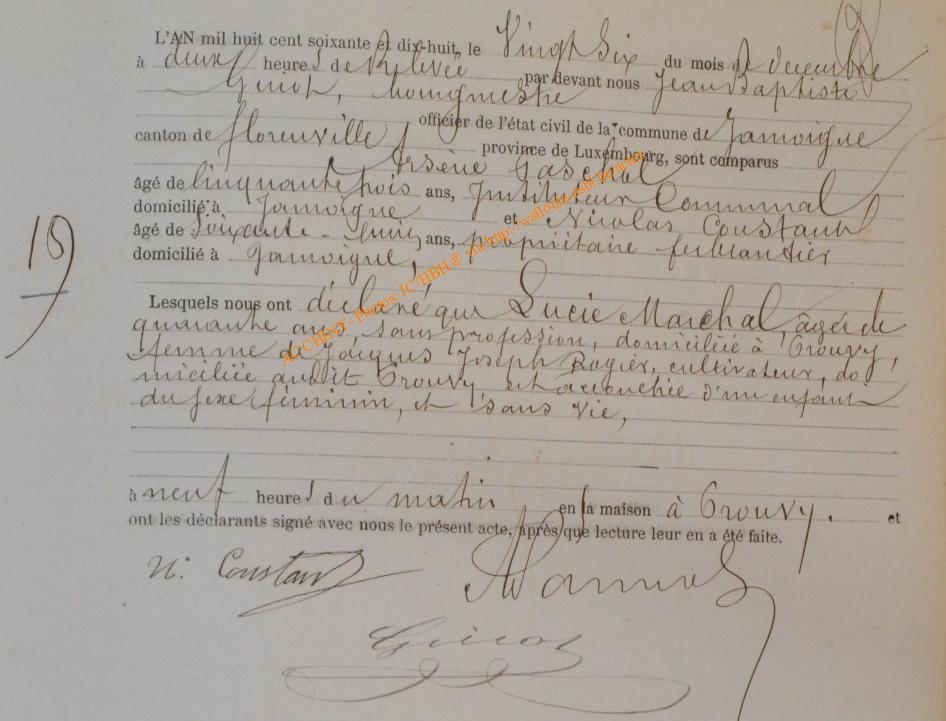 L'AN mil huit cent soixante et dix-huit, le Vingt Six du mois de decembre
à deux heures de Relevée par devant nous Jean Baptiste
Guiot, bourgmestre
officier de l'état civil de la commune de Jamoigne
canton de florenville province de Luxembourg, sont comparus
Arsène
âgé de Cinquante trois ans, Instituteur Communal
domicilié à Jamoigne et Nicolas Constant
âgé de Soixante - ans, propriétaire
domicilié à Jamoigne,
19
Lesquels nous ont déclaré que Lucie Marchal, âgée de
quarante ans, sans profession, domiciliée à Prouvy,
femme de Jacques Joseph Rogier, cultivateur, do
miciliée audit Prouvy est accouchée d'un enfant
du sexe féminin, et sans vie,
à neuf heures du matin en sa maison à Prouvy. et
ont les déclarants signé avec nous le présent acte, après que lecture leur en a été faite.
N. Constant
Guiot
AGCHENY - Photos: JC HBH ® via http://wallonia.asbl